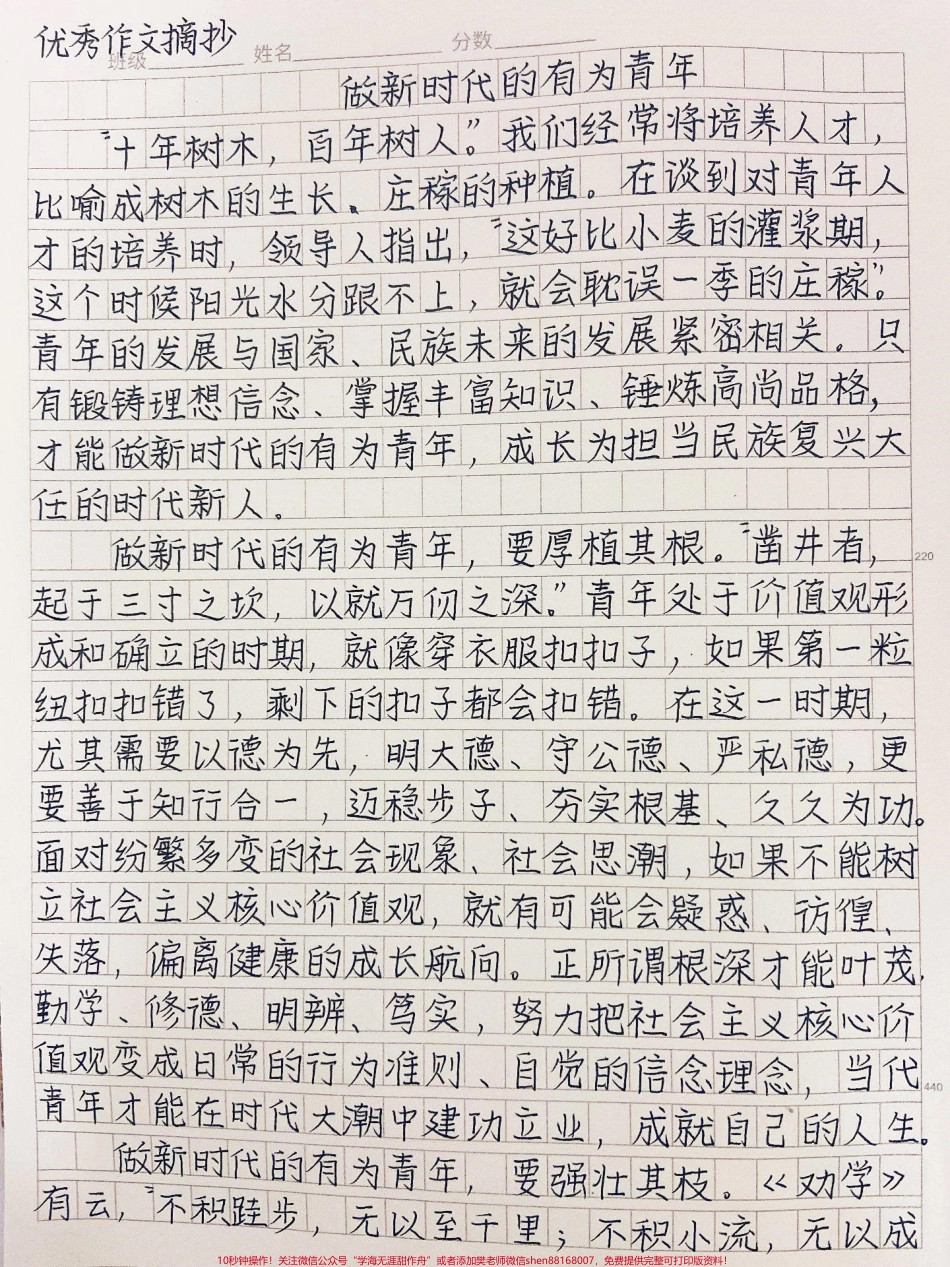 优秀作文摘抄
班级 姓名 分数
做新时代的有为青年
“十年树木，百年树人。”我们经常将培养人才，
比喻成树木的生长、庄稼的种植。在谈到对青年人
才的培养时，领导人指出，“这好比小麦的灌浆期，
这个时候阳光水分跟不上，就会耽误一季的庄稼”。
青年的发展与国家、民族未来的发展紧密相关。只
有锻铸理想信念、掌握丰富知识、锤炼高尚品格，
才能做新时代的有为青年，成长为担当民族复兴大
任的时代新人。
做新时代的有为青年，要厚植其根。“凿井者，
220
起于三寸之坎，以就万仞之深。”青年处于价值观形
成和确立的时期，就像穿衣服扣扣子，如果第一粒
纽扣扣错了，剩下的扣子都会扣错。在这一时期，
尤其需要以德为先，明大德、守公德、严私德，更
要善于知行合一，迈稳步子、夯实根基、久久为功。
面对纷繁多变的社会现象、社会思潮，如果不能树
立社会主义核心价值观，就有可能会疑惑、彷徨、
失落，偏离健康的成长航向。正所谓根深才能叶茂，
勤学、修德、明辨、笃实，努力把社会主义核心价
值观变成日常的行为准则、自觉的信念理念，当代
440
青年才能在时代大潮中建功立业，成就自己的人生。
做新时代的有为青年，要强壮其枝。《劝学》
有云，“不积跬步，无以至千里；不积小流，无以成
10秒钟操作！关注微信公众号“学海无涯甜作舟”或者添加樊老师微信shen88168007，免费提供完整可打印版资料！